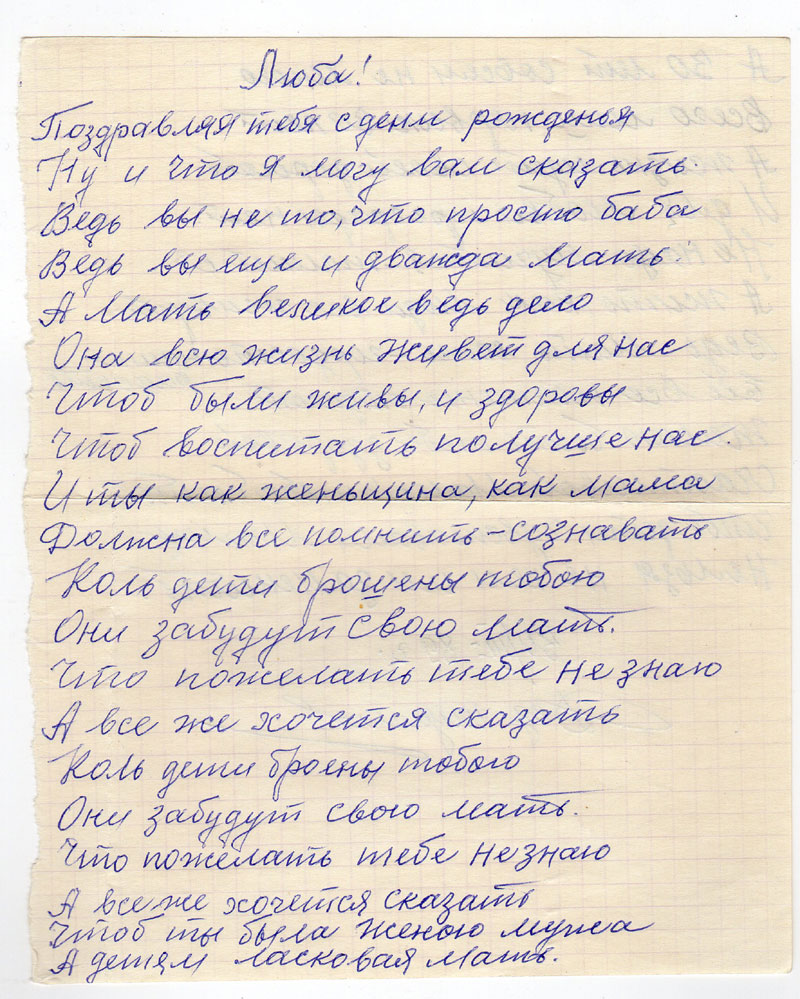 Люба!
Поздравляя тебя с денм рожденья
Ну и что я могу вам сказать.
Ведь вы не то, что просто баба
Ведь вы еще и дважда Мать.
А Мать великое ведь дело
Она всю жизнь живет для нас
Чтоб были живы, и здоровы
Чтоб воспитать получше нас.
И ты как женьщина, как мама
Должна все помнить – сознавать
Коль дети брошены тобою
Они забудут свою мать.
Что пожелать тебе не знаю
А все же хочется сказать
Коль дети броены тобою
Они забудут свою мать.
Что пожелать тебе не знаю
А все же хочется сказать
Чтоб ты была женою мужа
А детям ласковая мать.